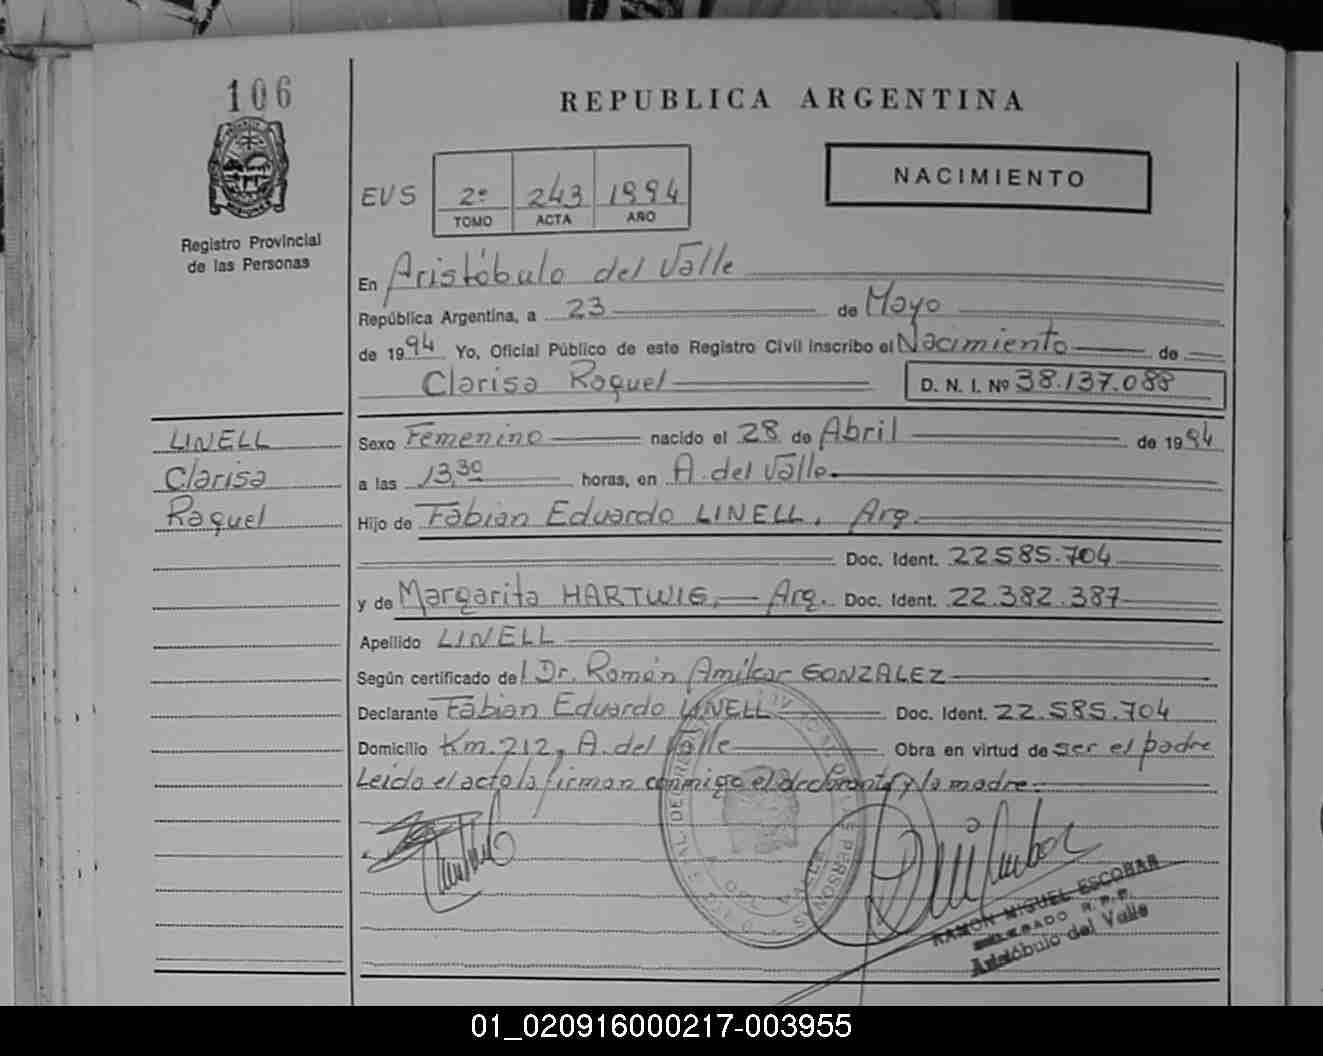 106
REPUBLICA ARGENTINA
NACIMIENTO
EVS 2º 243 1994
TOMO ACTA AÑO
Registro Provincial
de las Personas
En Aristóbulo del Valle
República Argentina, a 23 de Mayo
de 1994 Yo, Oficial Público de este Registro Civil inscribo el Nacimiento de
Clarisa Raquel D. N. I. Nº 38.137.088
LINELL
Clarisa
Raquel
Sexo Femenino nacido el 28 de Abril de 1994
a las 13,30 horas, en A. del Valle.
Hijo de Fabian Eduardo LINELL, Arg.
Doc. Ident. 22.585.704
y de Margarita HARTWIG, Arg. Doc. Ident. 22.382.387
Apellido LINELL
Según certificado del Dr. Román Amílcar GONZALEZ
Declarante Fabian Eduardo LINELL Doc. Ident. 22.585.704
Domicilio Km. 212, A. del Valle Obra en virtud de ser el padre
Leido el acta la firman conmigo el declarante y la madre.
RAMON MIGUEL ESCOBAR
R.P.P.
Aristóbulo del Valle
01_020916000217-003955